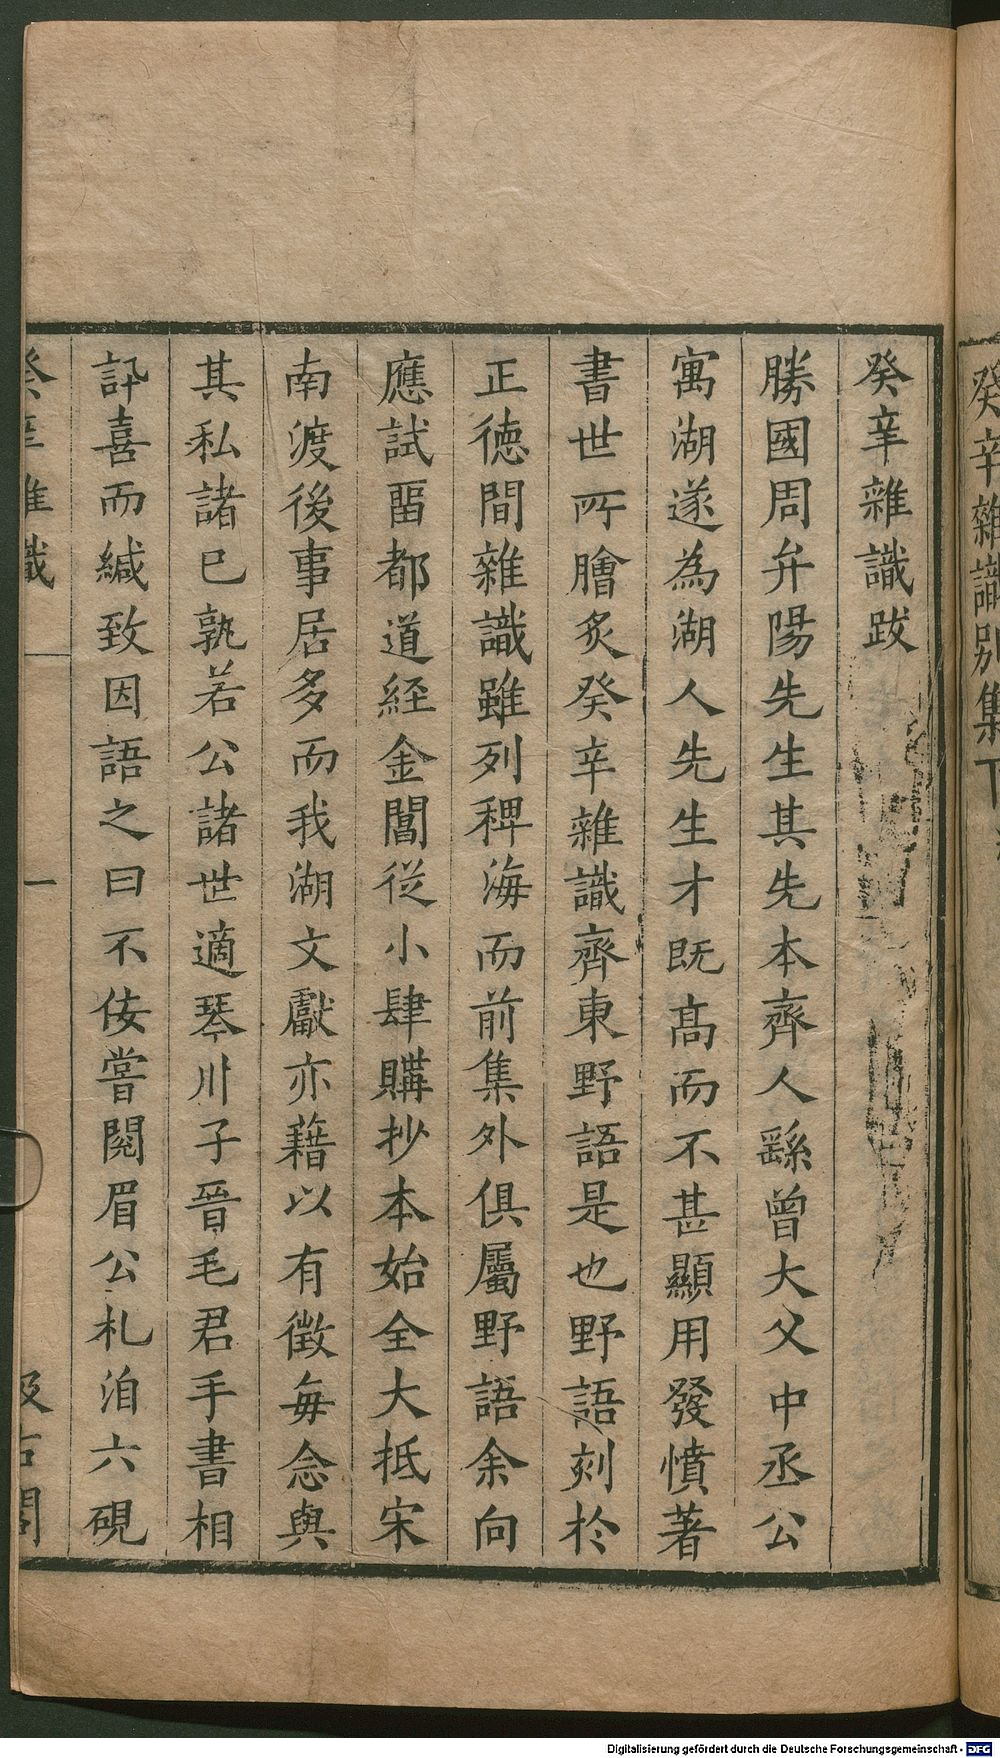 癸辛雜識別集下
癸辛雜識跋
勝國周弁陽先生其先本齊人繇曾大父中丞公
寓湖遂為湖人先生才既高而不甚顯用發憤著
書世所膾炙癸辛雜識齊東野語是也野語刻於
正德間雜識雖列稗海而前集外俱屬野語余向
應試畱都道經金閶從小肆購抄本始全大抵宋
南渡後事居多而我湖文獻亦藉以有徵每念與
其私諸已孰若公諸世適琴川子晉毛君手書相
訊喜而緘致因語之曰不佞嘗閱眉公札洎六硯
癸辛雜識 一 汲古閣
Digitalisierung gefördert durch die Deutsche Forschungsgemeinschaft - DFG